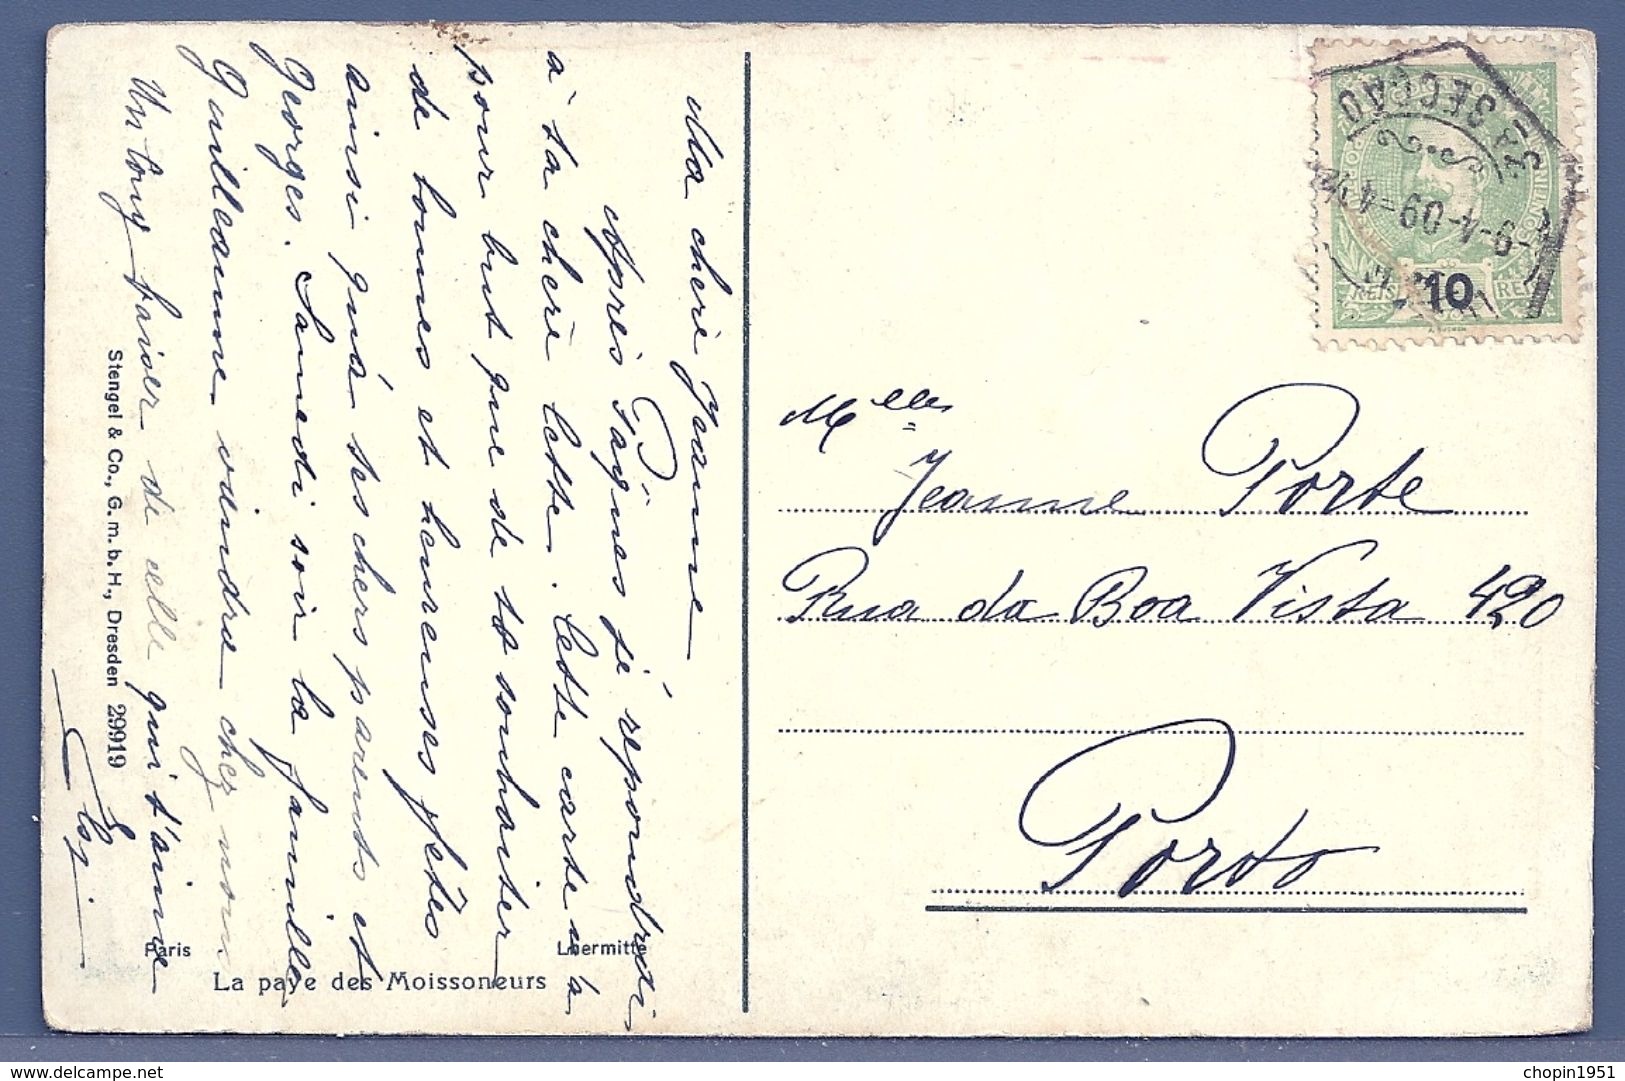 Ma chère Jeanne
Après Pâques je répondrai
à ta chère lettre. Cette carte n'a
pour but que de te souhaiter
de bonnes et heureuses fêtes
ainsi qu'à tes chers parents et
Georges. Samedi soir la famille
Guilleaume viendra chez nous
Un long baiser de celle qui t'aime
Elsj
Stengel & Co., G. m. b. H., Dresden 29919
Paris
Lhermitte
La paye des Moissoneurs
10
REIS
9-4-09
SECÇÃO
Melle
Jeanne Porte
Rua da Boa Vista 420
Porto
chopin1951